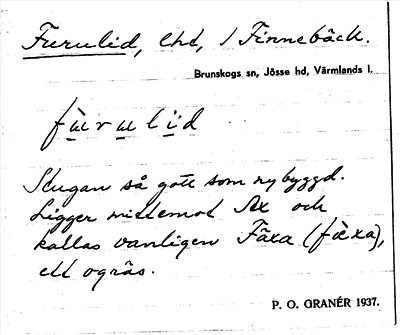 Furulid, lhd, / Finnebäck.
Brunskogs sn, Jösse hd, Värmlands l.
fùrulìd
Stugan så gott som nybyggd.
Ligger mittemot Ax och
kallas vanligen Fäxa (fæ̀xa),
ett ogräs.
P. O. GRANÉR 1937.